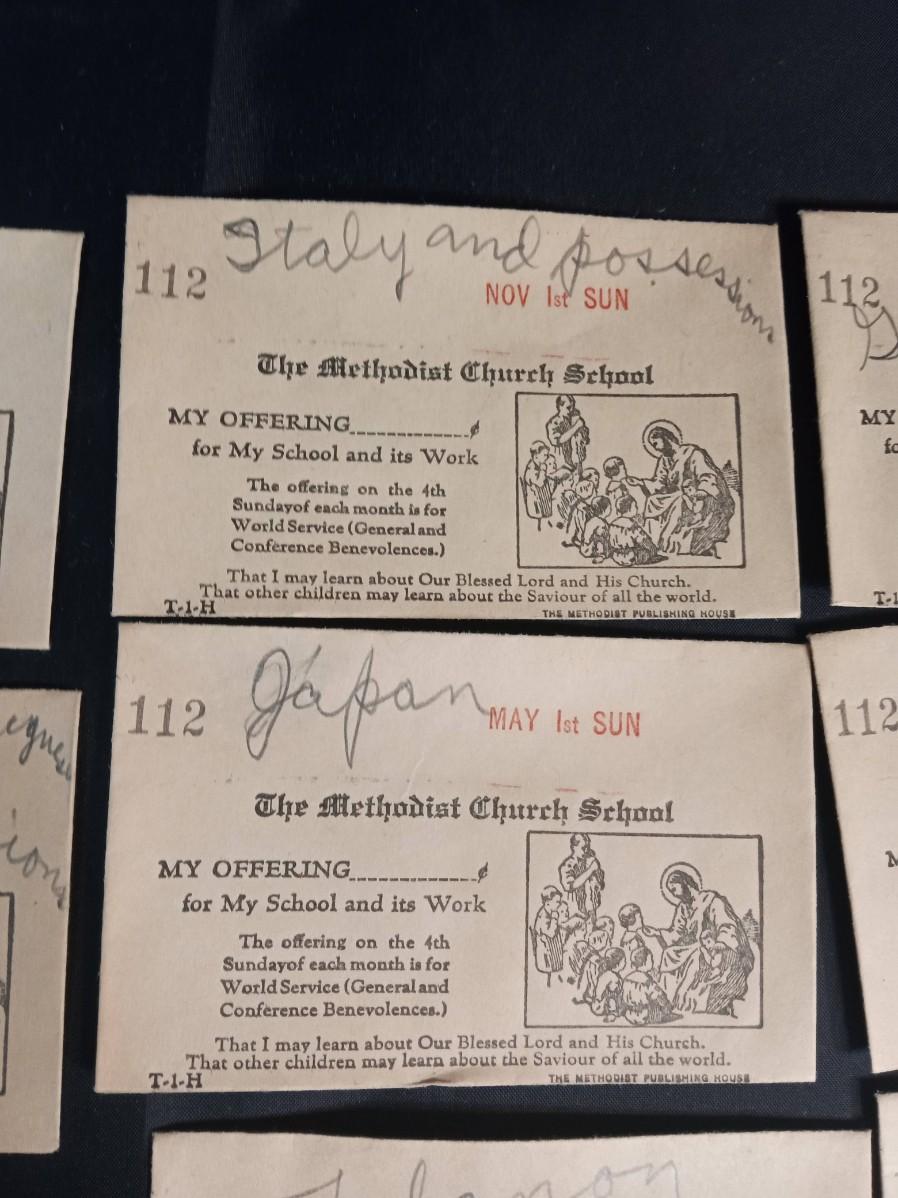 Italy and possessions
112
NOV 1st SUN
The Methodist Church School
MY OFFERING_____________¢
for My School and its Work
The offering on the 4th
Sundayof each month is for
World Service (General and
Conference Benevolences.)
That I may learn about Our Blessed Lord and His Church.
That other children may learn about the Saviour of all the world.
T-1-H
THE METHODIST PUBLISHING HOUSE
112
MY
Japan
112
MAY 1st SUN
The Methodist Church School
MY OFFERING_____________¢
for My School and its Work
The offering on the 4th
Sundayof each month is for
World Service (General and
Conference Benevolences.)
That I may learn about Our Blessed Lord and His Church.
That other children may learn about the Saviour of all the world.
T-1-H
THE METHODIST PUBLISHING HOUSE
112